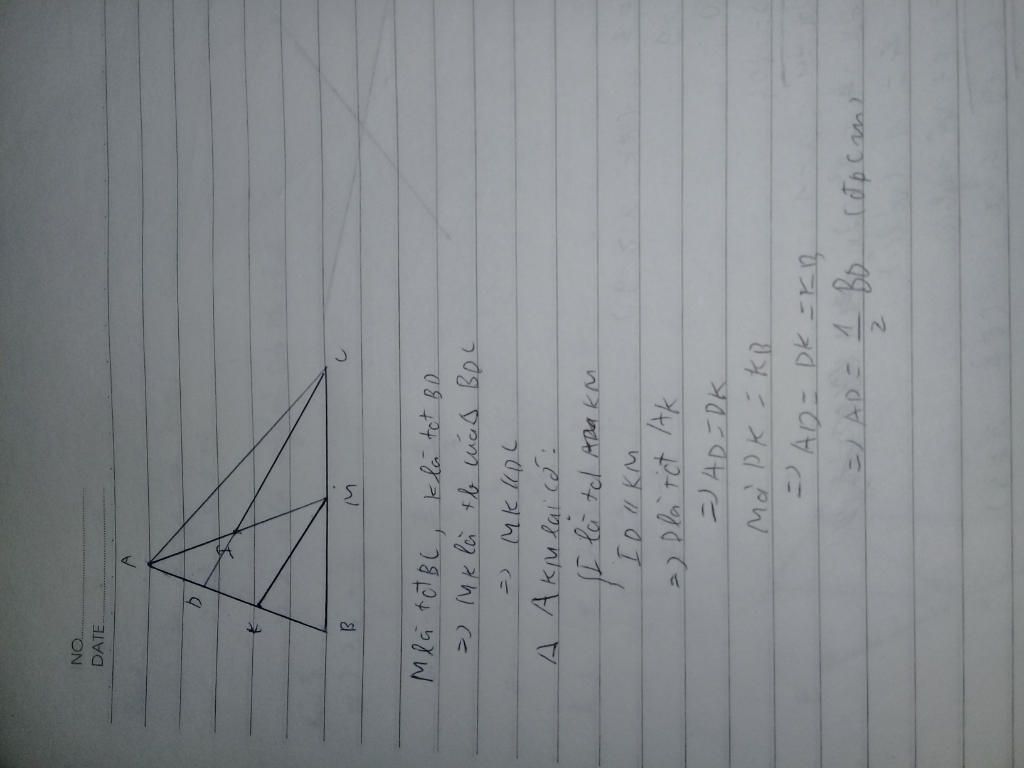 NO.
DATE
A
D
I
K
B
M
C
M là tđ BC, K là tđ BD
=> MK là tb của Δ BDC
=> MK // DC
Δ AKM lại có:
I là tđ AM
ID // KM
=> D là tđ AK
=> AD = DK
Mà DK = KB
=> AD = DK = KB
=> AD = 1/2 BD (đpcm)